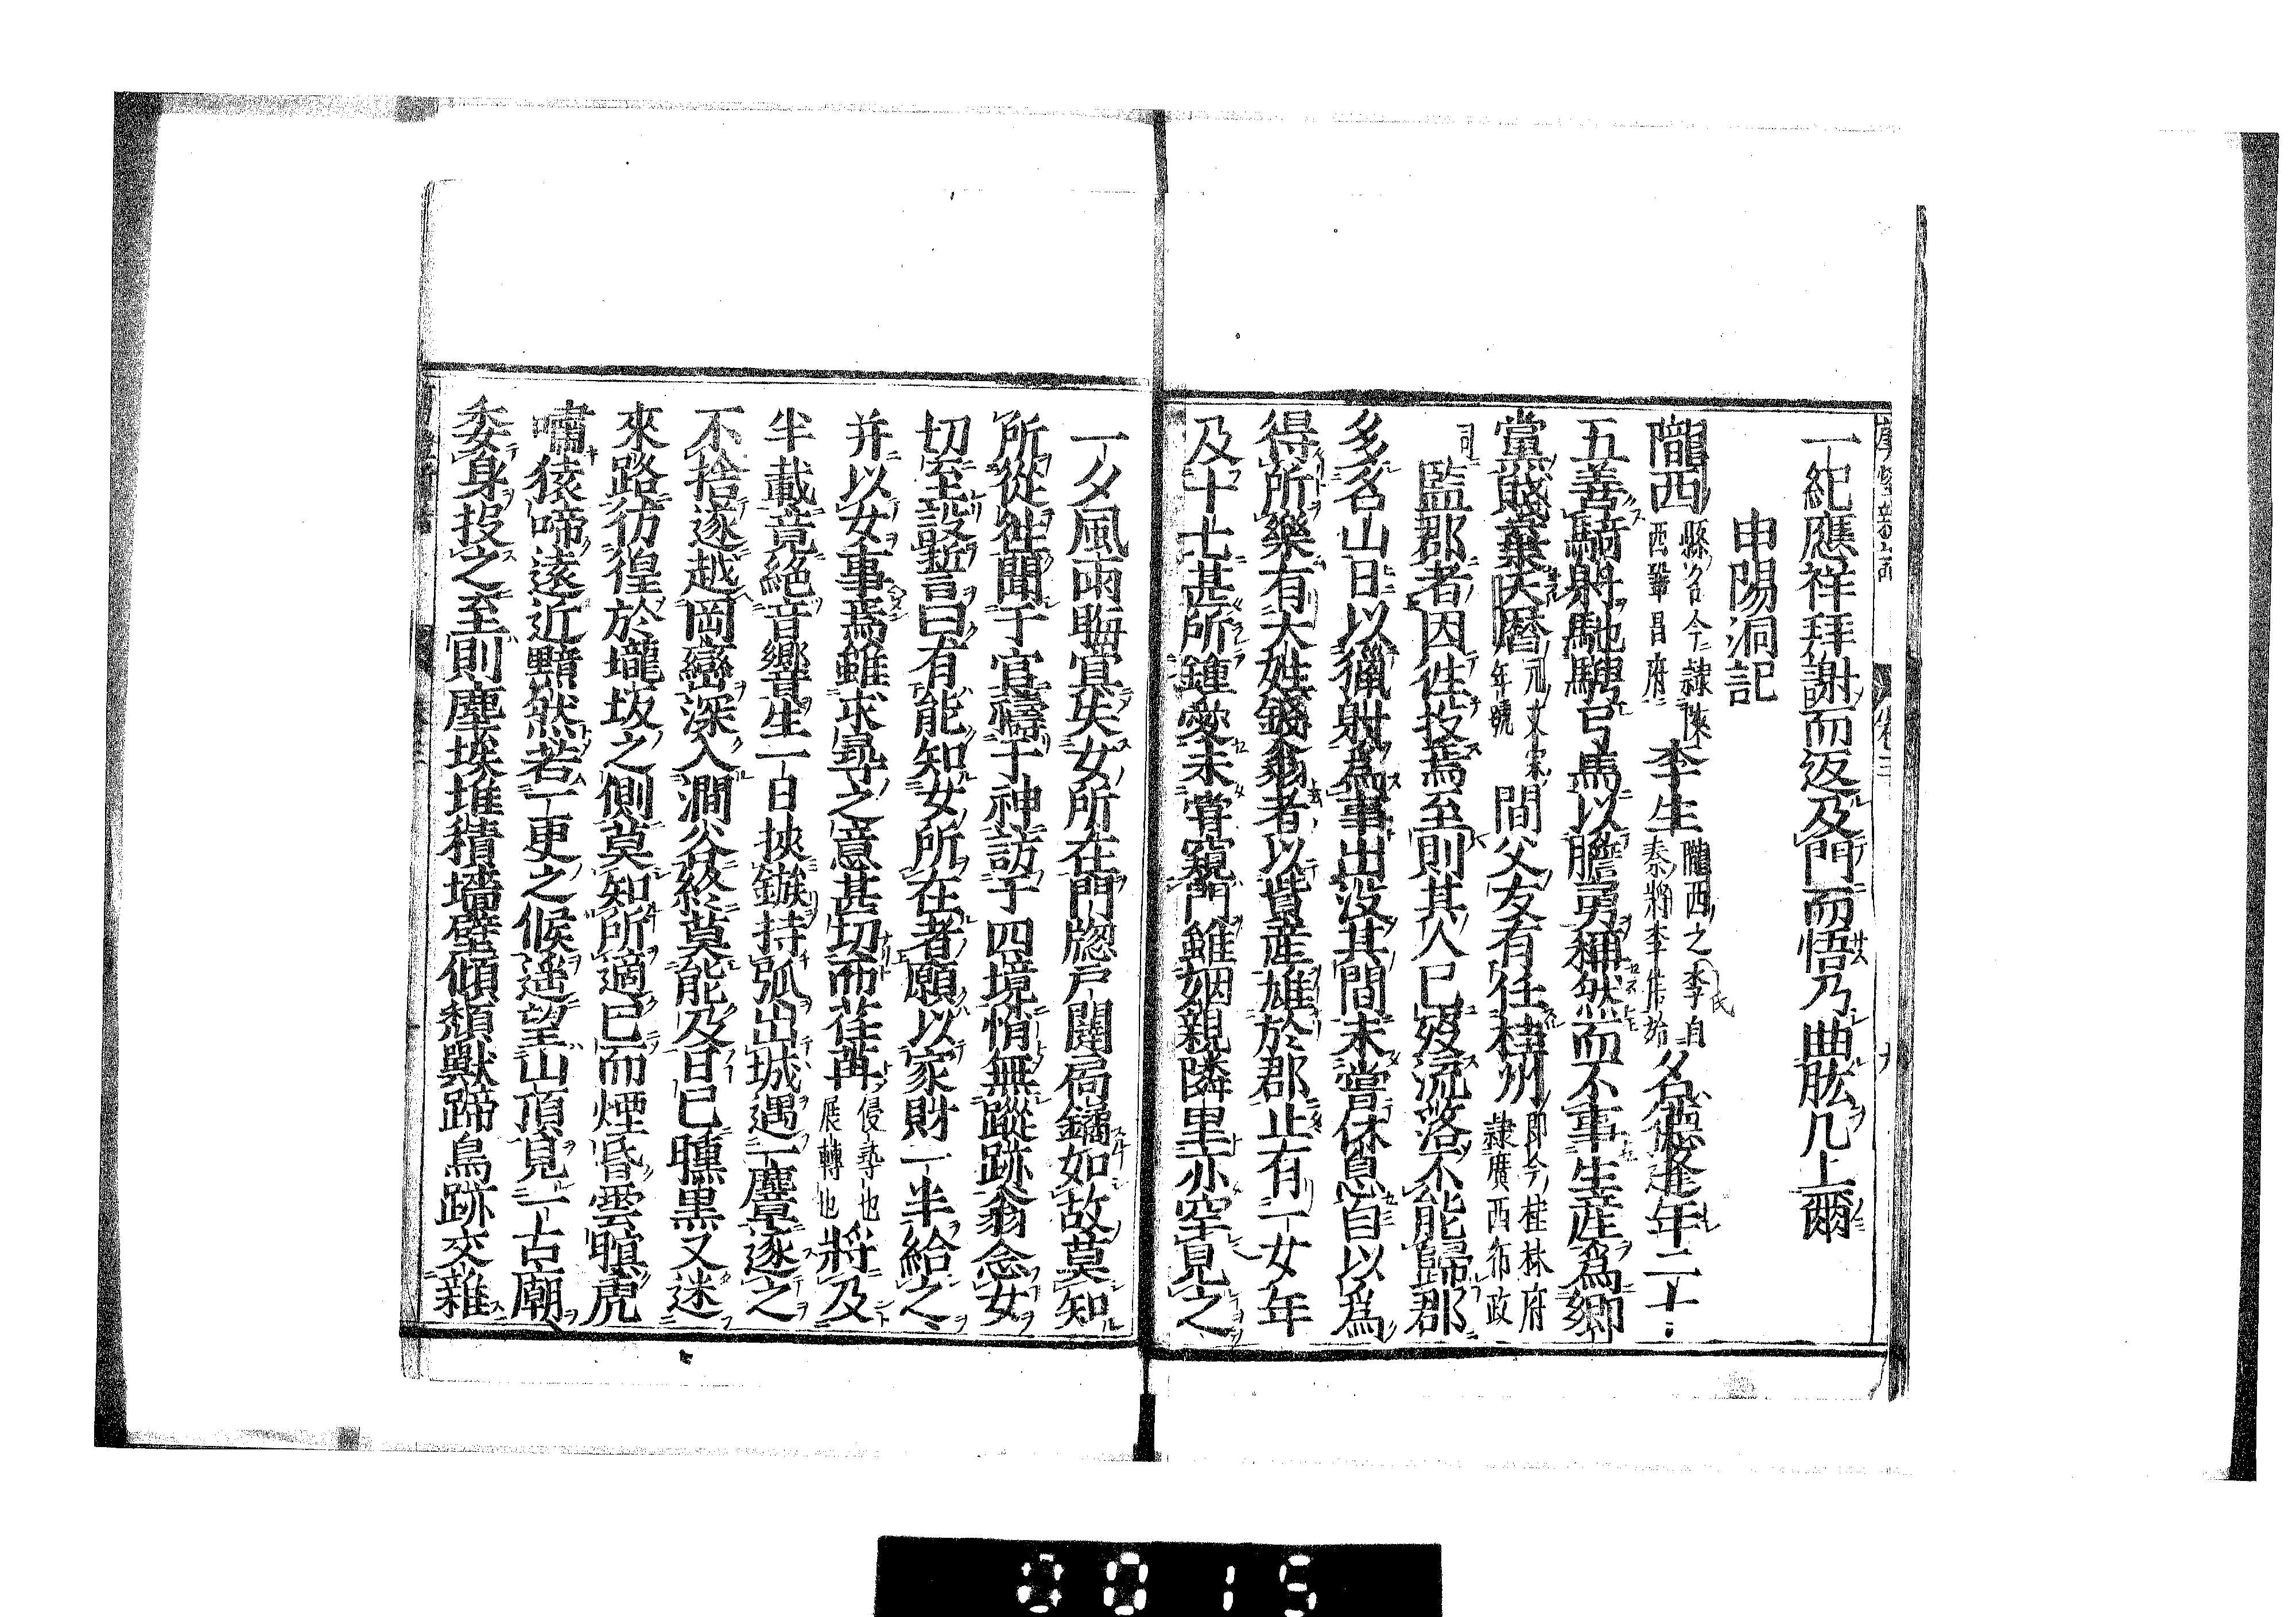 一紀應祥拜謝而返及門而悟乃曲肱几上爾
申陽洞記
隴西縣名今隷陝西鞏昌府李生隴西之李氏自秦將李信始名德逢年二十
五善騎射馳騁弓馬以膽勇稱然而不事生產爲鄉
黨賤棄天曆元文宗年號間父友有任桂州即今桂林府隷廣西布政
司監郡者因徃投焉至則其人已歿流落不能歸郡
多名山日以獵射爲事出没其間未嘗休息自以爲
得所樂有大姓錢翁者以貲產雄於郡止有一女年
及十七甚所鍾愛未嘗窺門雖姻親隣里亦罕見之
一夕風雨晦冥失女所在門牕戸闥扃鐍如故莫知
所從徃聞于官禱于神訪于四境悄無蹤跡翁念女
切至設誓曰有能知女所在者願以家財一半給之
并以女事焉雖求尋之意甚切而荏苒侵尋也展轉也將及
半載竟絕音響生一日挾鏃持弧出城遇一麞逐之
不捨遂越岡巒深入澗谷終莫能及日已曛黒又迷
來路彷徨於壠坂之側莫知所適已而煙昏雲暝虎
嘯猿啼遠近黯然若一更之候遥望山頂見一古廟
委身投之至則塵埃堆積墻壁傾頽獸蹄鳥跡交雜
0015